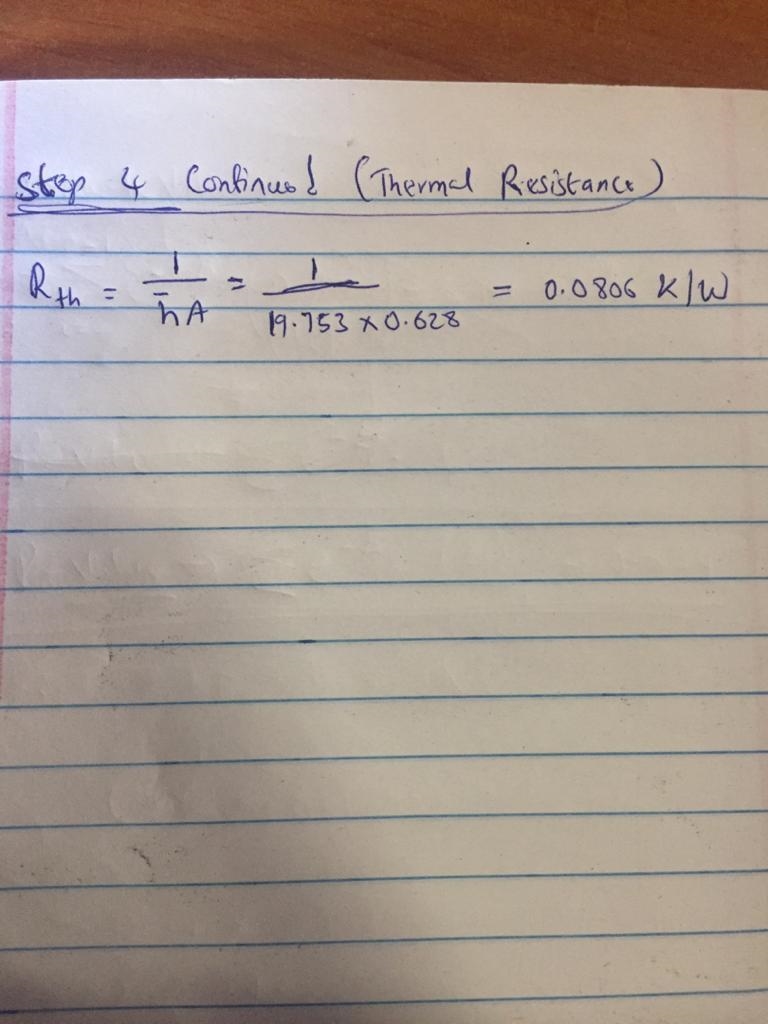 Step 4 Continued (Thermal Resistance)
R_th = 1/(h̄A) = 1/(19.753 x 0.628) = 0.0806 K/W